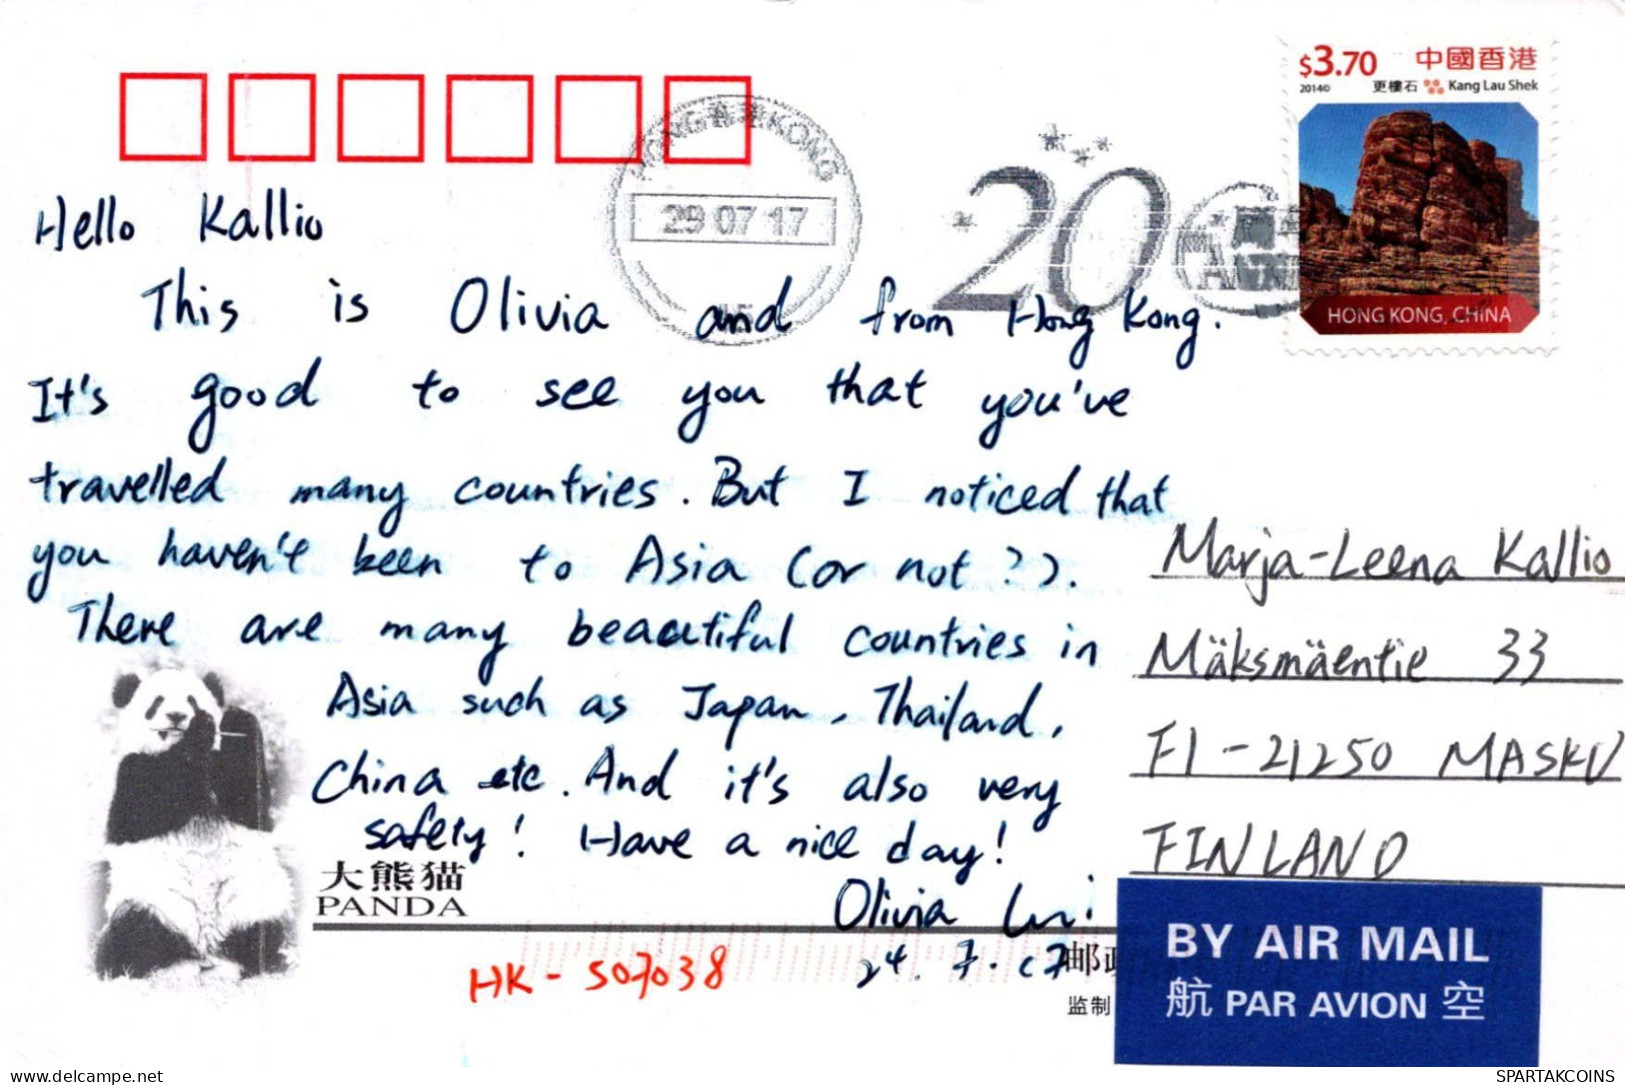 $3.70 中國香港
2014© 更樓石 Kang Lau Shek
HONG KONG, CHINA
HONG 香港 KONG
29 07 17
20
Hello Kallio
This is Olivia and from Hong Kong.
It's good to see you that you've
travelled many countries. But I noticed that
you haven't been to Asia (or not?).
There are many beautiful countries in
Asia such as Japan, Thailand,
China etc. And it's also very
safety! Have a nice day!
Olivia Lui
24.7.17
大熊猫
PANDA
HK-507038
Marja-Leena Kallio
Mäksmäentie 33
FI-21250 MASKU
FINLAND
邮政
监制
BY AIR MAIL
航 PAR AVION 空
delcampe.net
SPARTAKCOINS